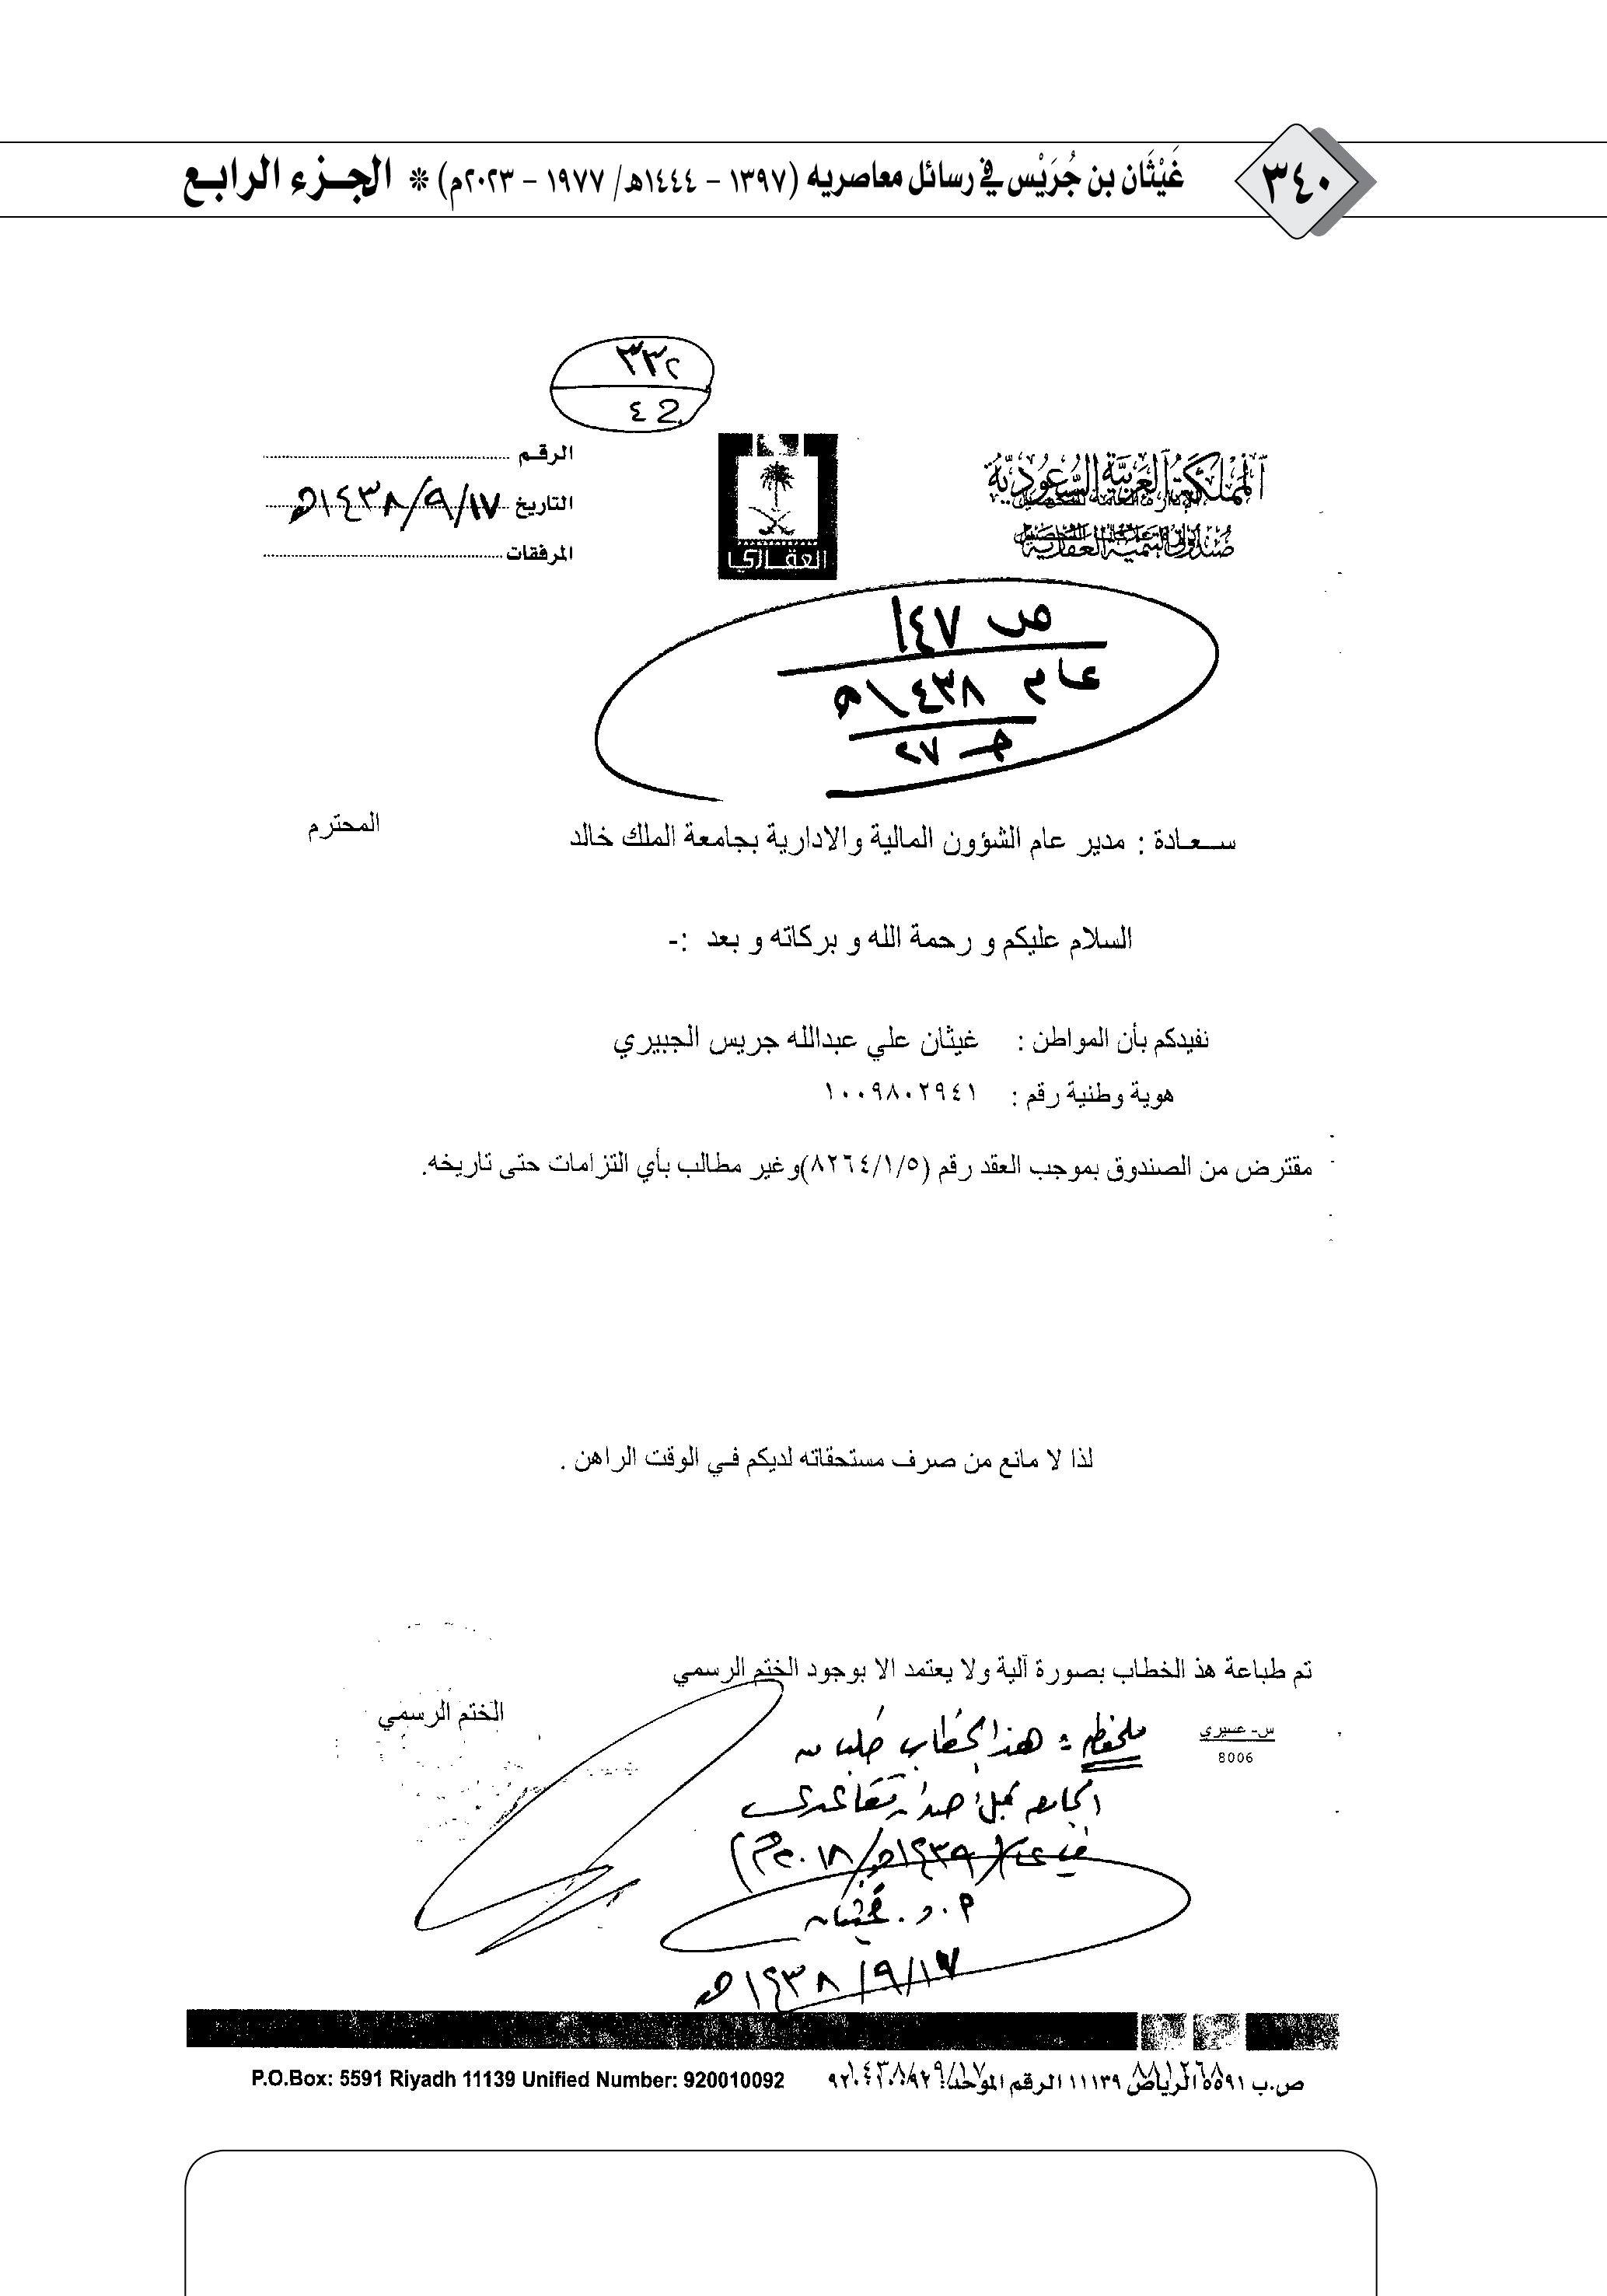 ٣٤٠
غَيْثَان بن جُرَيْس في رسائل معاصريه (١٣٩٧ - ١٤٤٤هـ/ ١٩٧٧ - ٢٠٢٣م) * الجزء الرابع
٣٣٢
٤2
المملكة العربية السعودية
صندوق التنمية العقارية
العقاري
الرقم
التاريخ ١٤٣٨/٩/١٧هـ
المرفقات
ص ١٤٧
عام ١٤٣٨هـ
جـ ٢٧
سعادة : مدير عام الشؤون المالية والادارية بجامعة الملك خالد المحترم
السلام عليكم و رحمة الله و بركاته و بعد :-
نفيدكم بأن المواطن : غيثان علي عبدالله جريس الجبيري
هوية وطنية رقم : ١٠٠٩٨٠٢٩٤١
مقترض من الصندوق بموجب العقد رقم (٨٢٦٤/١/٥)وغير مطالب بأي التزامات حتى تاريخه.
لذا لا مانع من صرف مستحقاته لديكم في الوقت الراهن .
تم طباعة هذ الخطاب بصورة آلية ولا يعتمد الا بوجود الختم الرسمي
الختم الرسمي
س- عسيري
8006
ملحظه : هذا الخطاب طلب من
الجامعة قبل تقاعدي
في (١٤٣٩هـ/٢٠١٨م)
أ.د. غيثان
١٤٣٨/٩/١٧هـ
ص.ب ٥٥٩١ الرياض ١١١٣٩ الرقم الموحد
P.O.Box: 5591 Riyadh 11139 Unified Number: 920010092